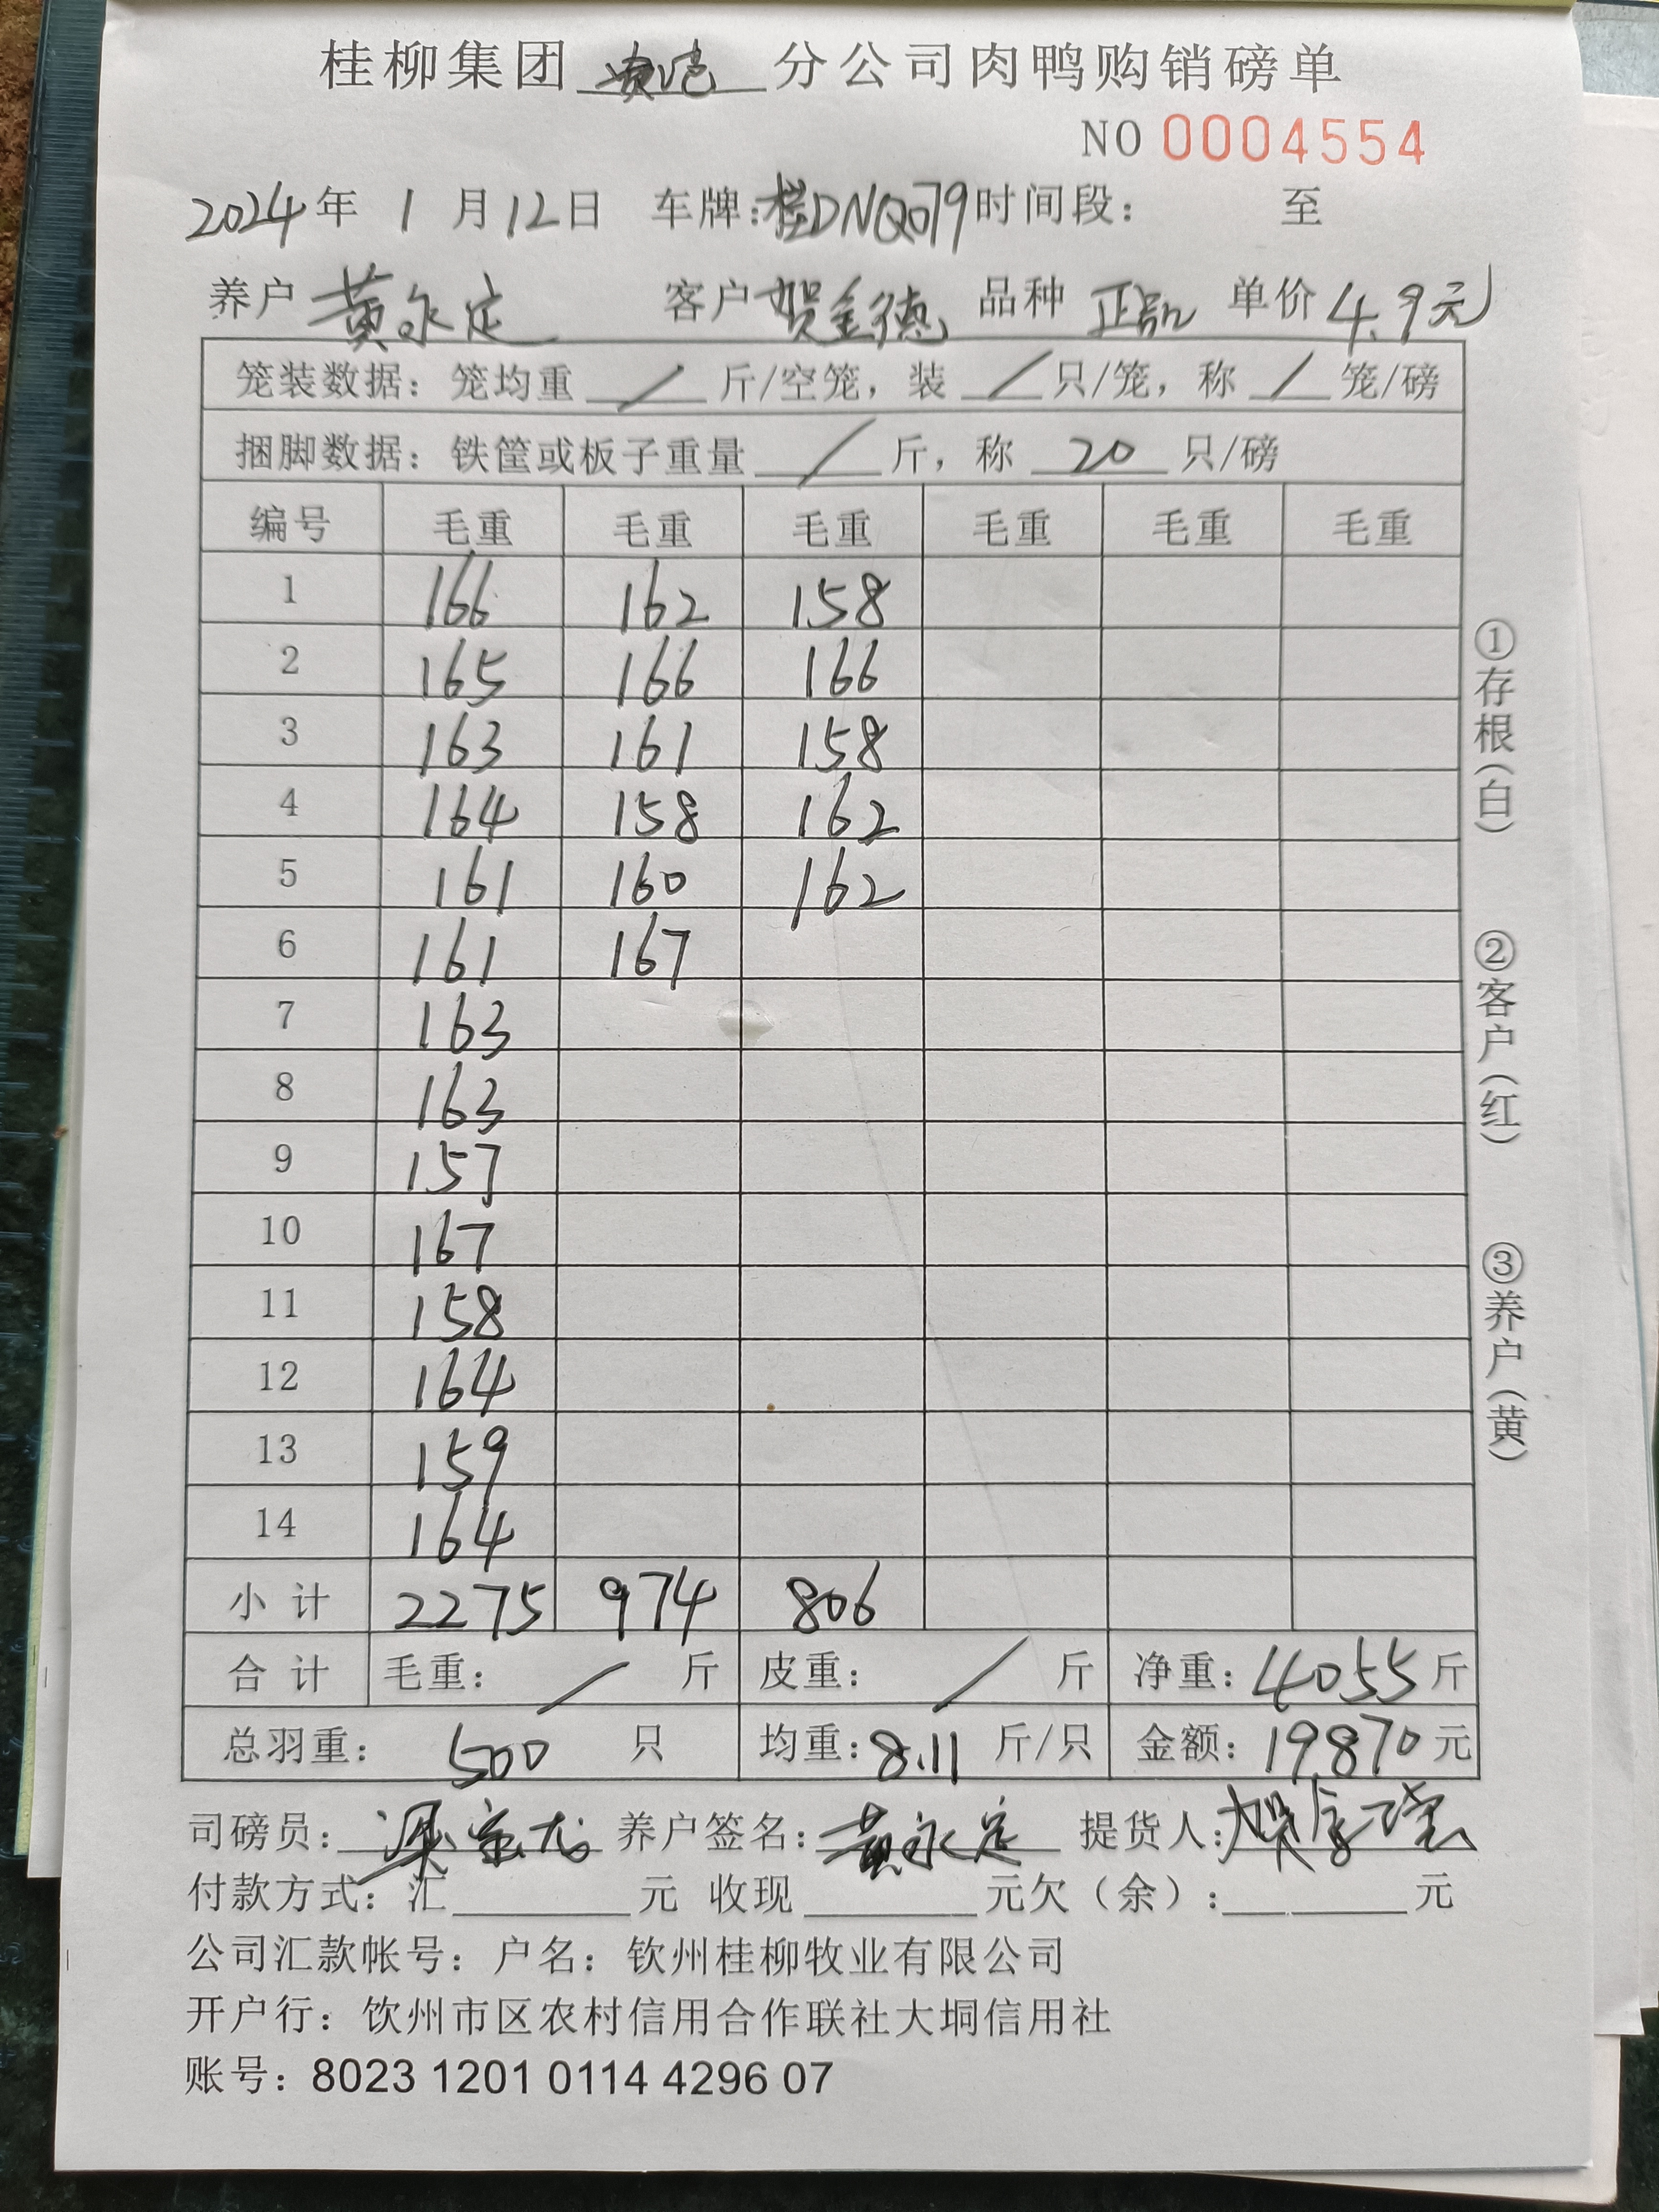 桂柳集团 分公司肉鸭购销磅单
NO 0004554
2024年 1 月 12日 车牌:桂DNQ079 时间段: 至
养户 黄永定 客户 贺金德 品种 正品 单价 4.9元
笼装数据: 笼均重 / 斤/空笼, 装 / 只/笼, 称 / 笼/磅
捆脚数据: 铁筐或板子重量 / 斤, 称 20 只/磅
编号 毛重 毛重 毛重 毛重 毛重 毛重
1 166 162 158
2 165 166 166
3 163 161 158
4 164 158 162
5 161 160 162
6 161 167
7 163
8 163
9 157
10 167
11 158
12 164
13 159
14 164
小 计 2275 974 806
合 计 毛重: / 斤 皮重: / 斤 净重: 4055斤
总羽重: 500 只 均重:8.11 斤/只 金额: 19870元
司磅员: 养户签名: 黄永定 提货人:
付款方式: 汇 元 收现 元欠(余): 元
公司汇款帐号: 户名: 钦州桂柳牧业有限公司
开户行: 饮州市区农村信用合作联社大垌信用社
账号: 8023 1201 0114 4296 07
①存根(白)
②客户(红)
③养户(黄)